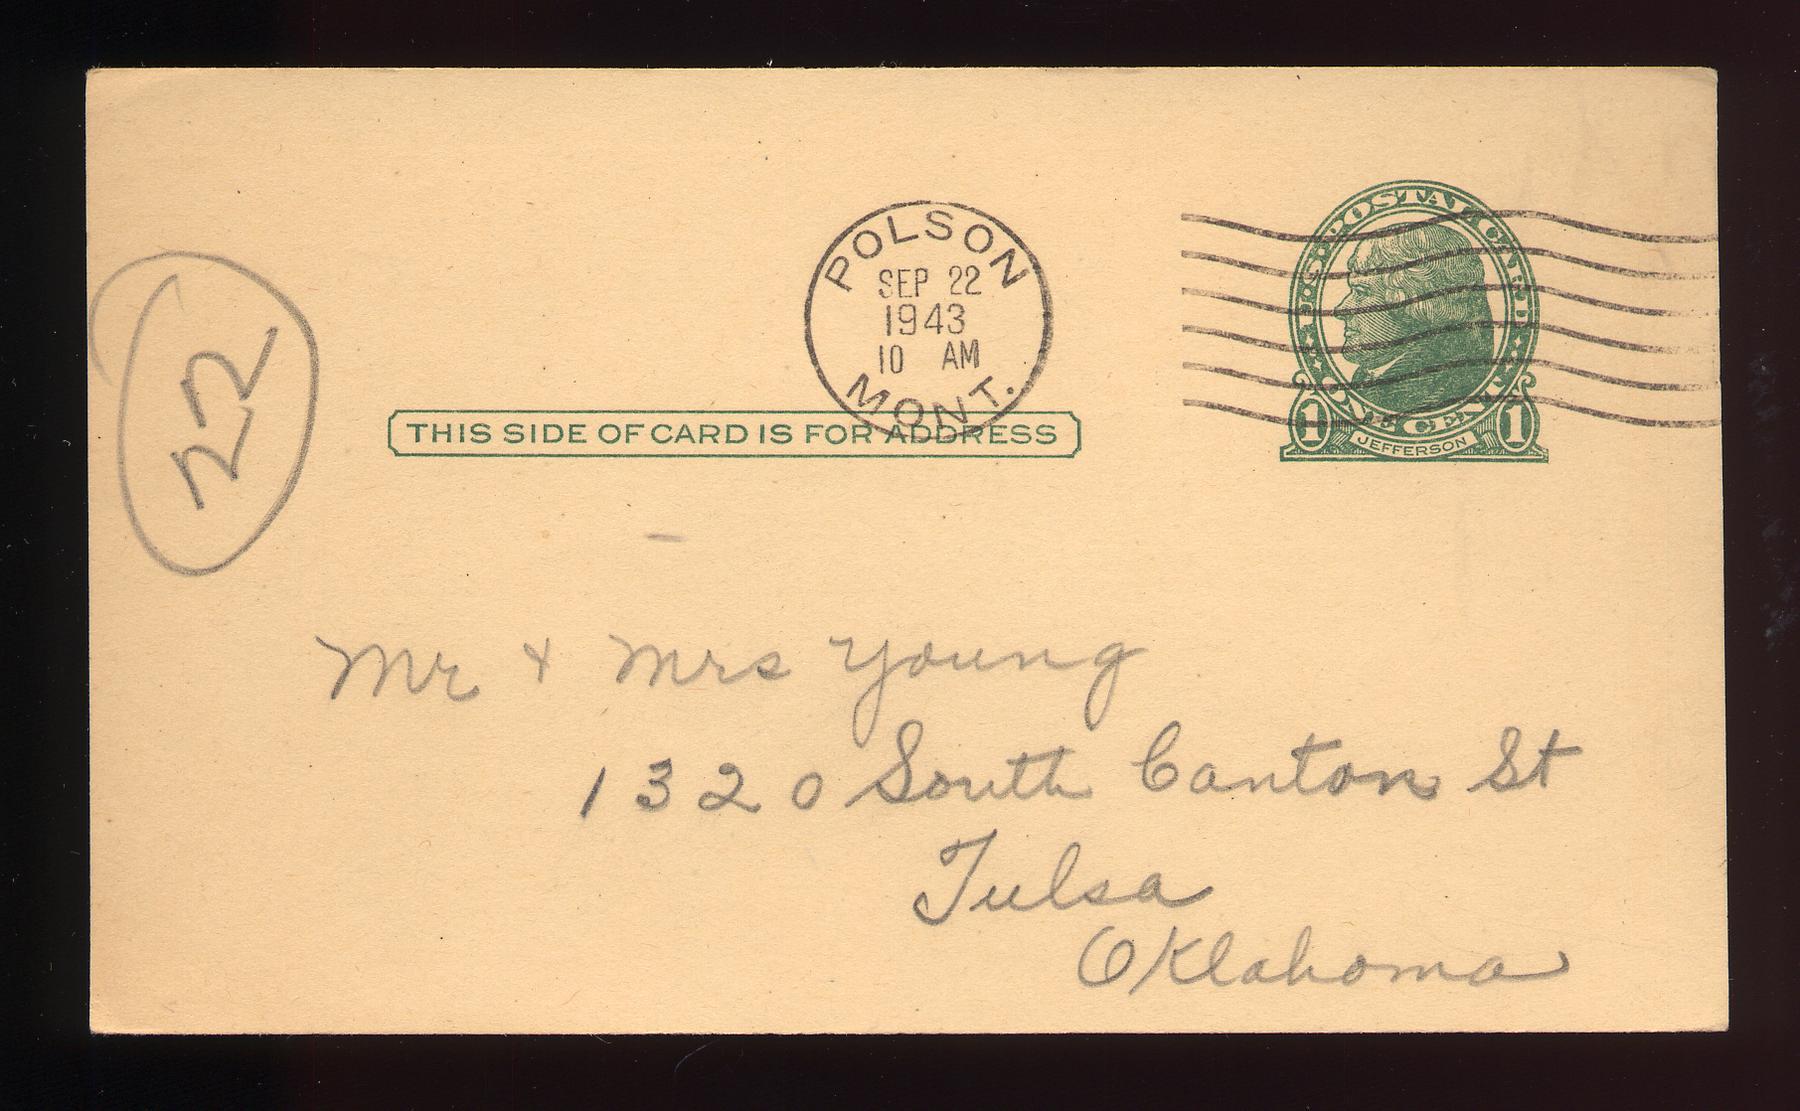 POLSON
SEP 22
1943
10 AM
MONT.
U·S·POSTAL CARD
ONE CENT
1 JEFFERSON 1
THIS SIDE OF CARD IS FOR ADDRESS
22
Mr + Mrs Young
1320 South Canton St
Tulsa
Oklahoma